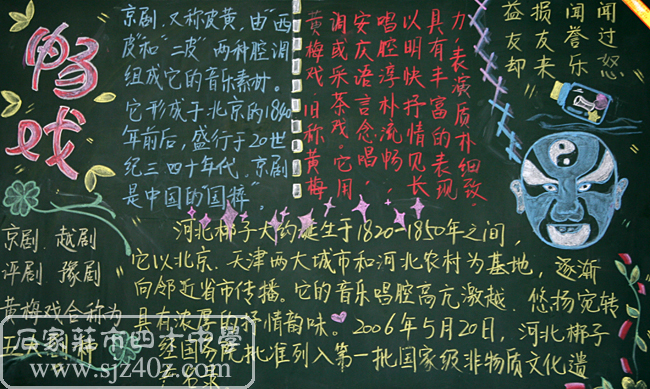 畅
戏
京剧，又称皮黄，由"西
皮"和"二皮"两种腔调
组成它的音乐素材。
它形成于北京的1840
年前后，盛行于20世
纪三四十年代，京剧
是中国的"国粹"。
黄梅戏 旧称黄梅
调或采茶戏，它用
安庆语言念唱，
唱腔淳朴流畅，
以明快抒情见长
具有丰富的表现
力，表演质朴细致
益友却
损友来
闻誉乐
闻过怒
京剧 越剧
评剧 豫剧
黄梅戏合称为
五大剧种
河北梆子大约诞生于1820-1850年之间，
它以北京、天津两大城市和河北农村为基地，逐渐
向邻近省市传播。它的音乐唱腔高亢激越、悠扬宛转
具有浓厚的抒情韵味。2006年5月20日，河北梆子
经国务院批准列入第一批国家级非物质文化遗
产名录
石家莊市四十中學
www.sjz40zx.com